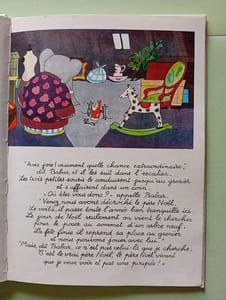 "Avec joie! vraiment quelle chance extraordinaire,"
dit Babar, et il les suit dans l'escalier.
Les trois petites souris le conduisent jusqu'au grenier
et s'affairent dans un coin.
- Où êtes vous donc? - appelle Babar.
- Venez, nous avons décroché le père Noël.
Le voilà, il passe toute l'année bien tranquille ici
Le jour de Noël seulement on vient le chercher
Pour le poser au sommet d'un arbre neuf.
La fête finie il reprend sa place au grenier
et nous pouvons jouer avec lui."
"Mais, dit Babar, ce n'est pas celui-là que je cherche.
C'est le vrai père Noël, le père Noël vivant
que je veux voir et pas une poupée! -